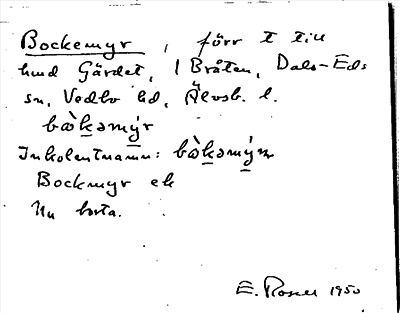 Bockemyr, förr t till
hmd Gärdet, 1 Bråten, Dals-Eds
sn, Vedbo hd, Älvsb. l.
bὼkəmýr
Inkolentnamn: bὼkəmýrn
Bockmyr ek
Nu borta.
E. Rosell 1950